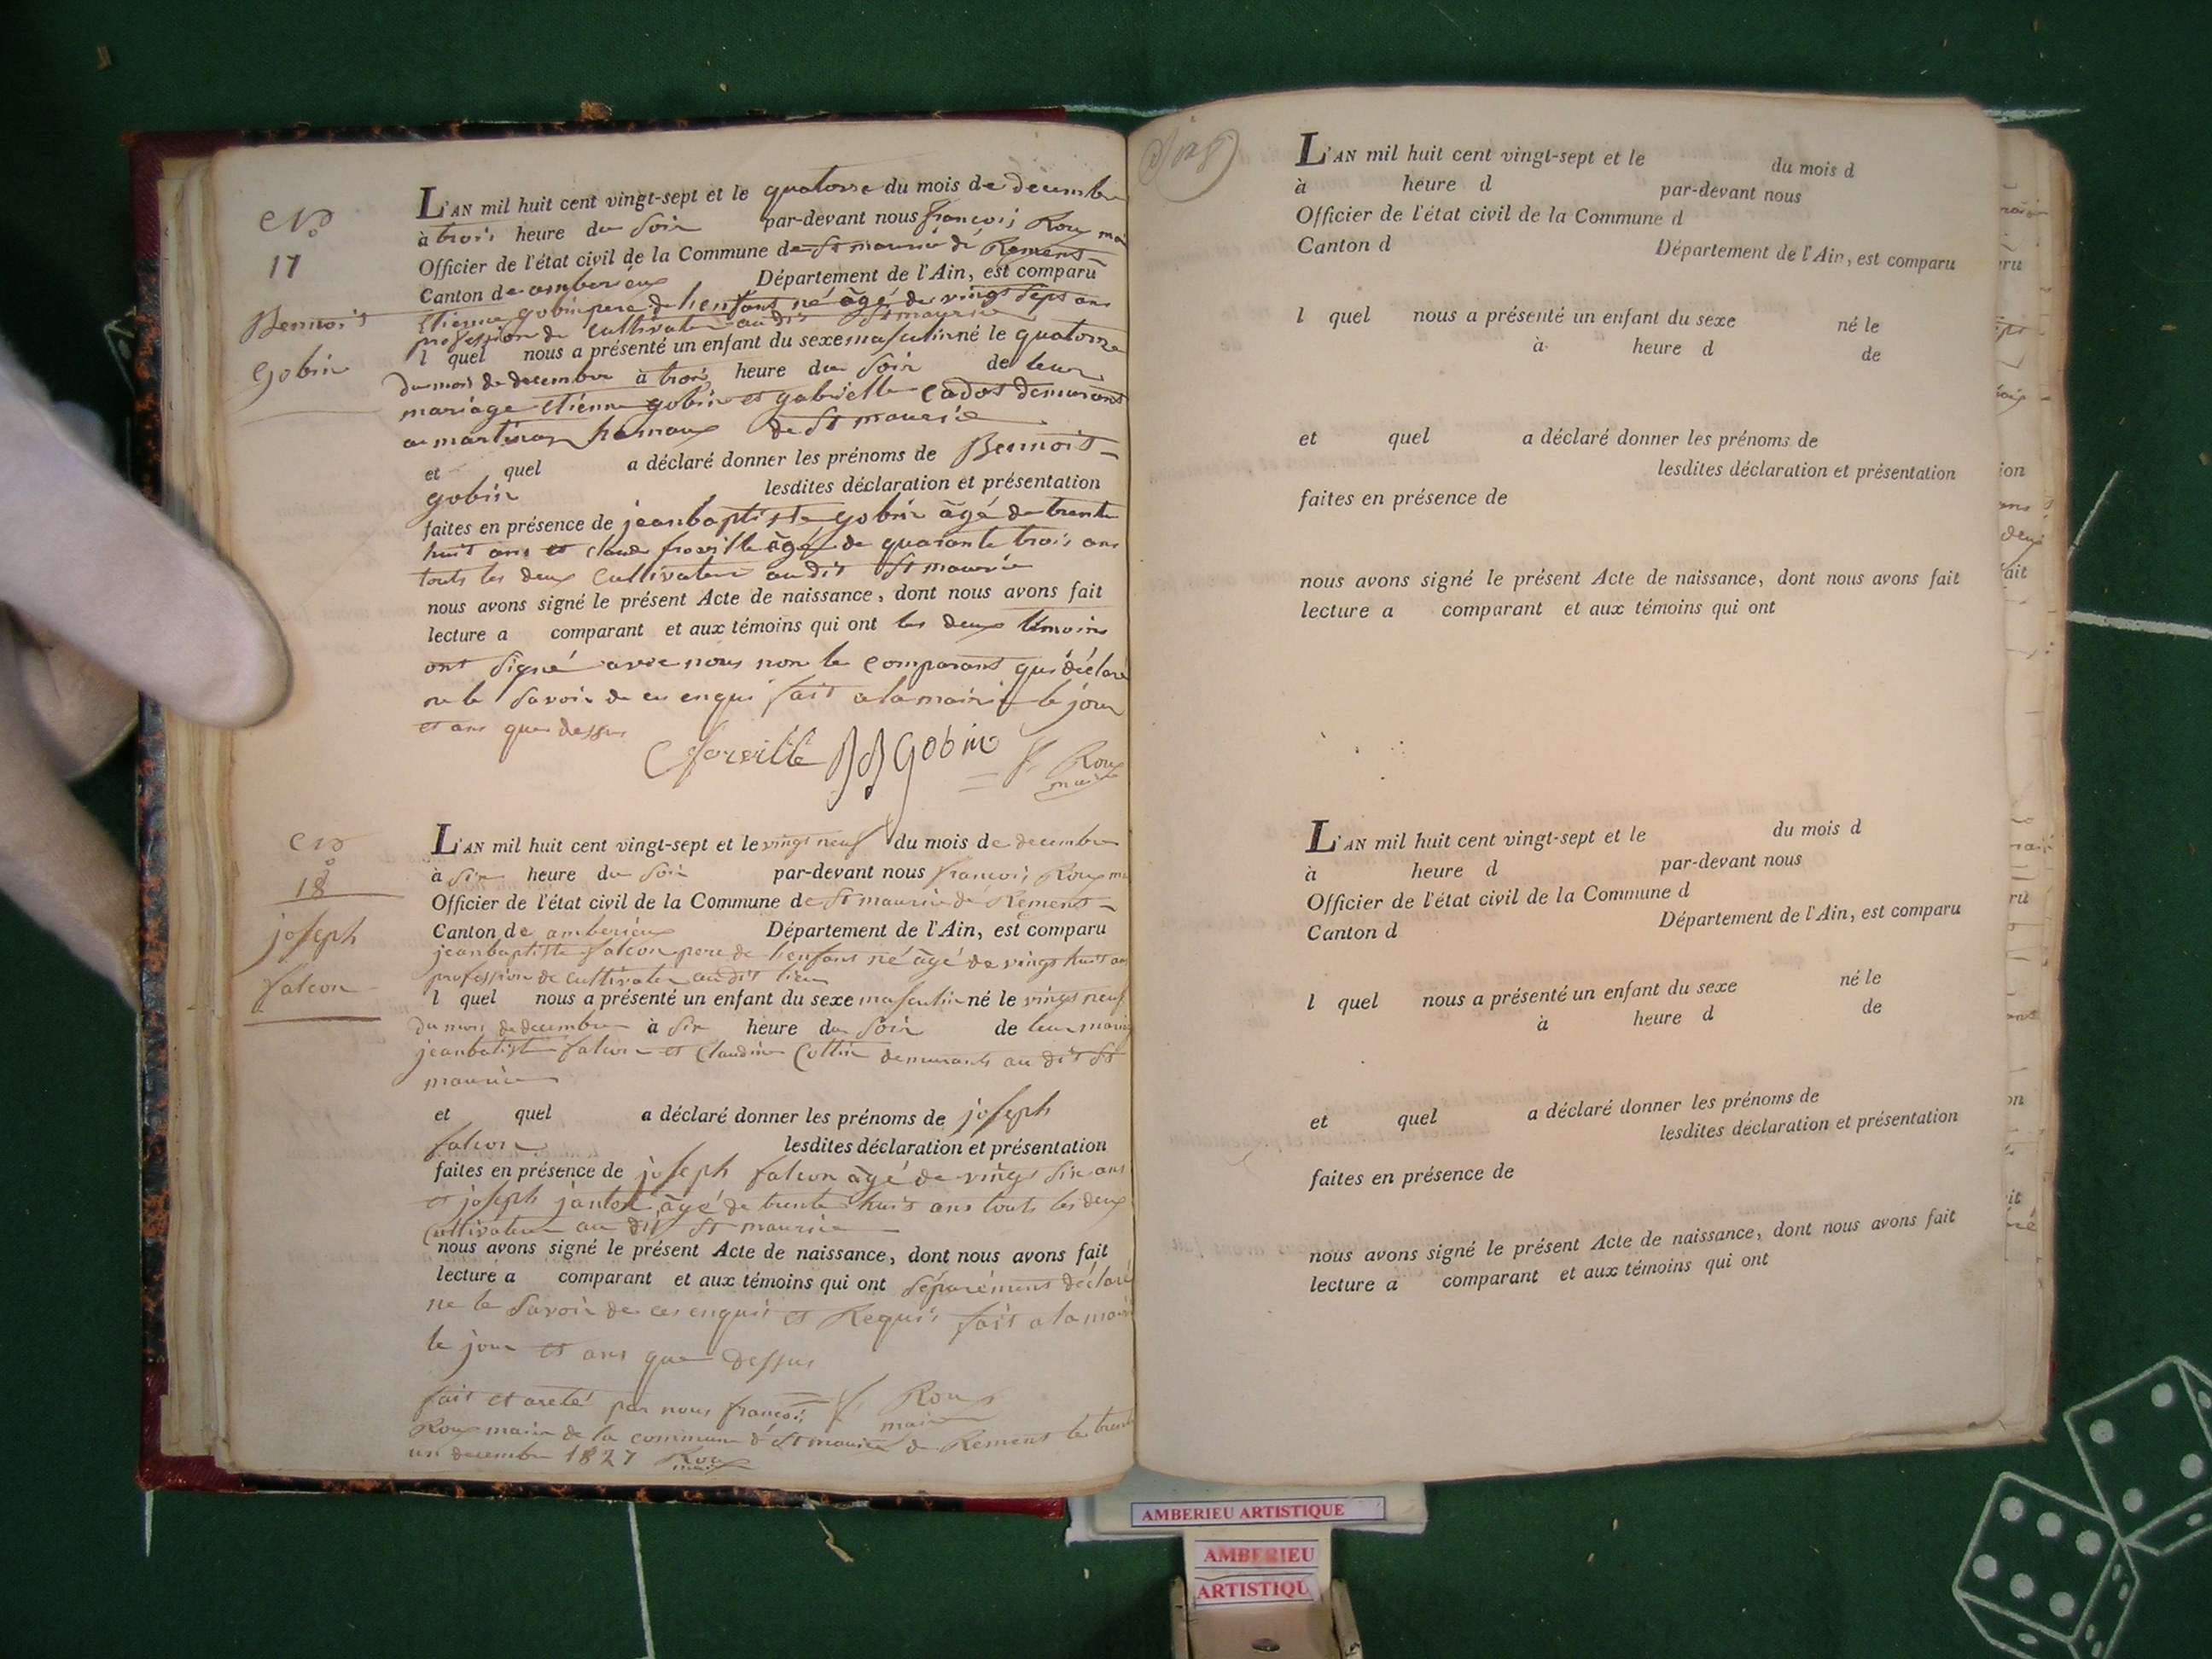 No
17
Bennoit
gobin
L'AN mil huit cent vingt-sept et le quatorse du mois de decembre
à trois heure du soir par-devant nous françois Roux
Officier de l'état civil de la Commune de St maurice de Remens
Canton de amberieux Département de l'Ain, est comparu
Etienne gobin pere de lenfant né âgé de vingt sept ans
profession de cultivateur au dit St maurice
l quel nous a présenté un enfant du sexe masculin né le quatorze
du mois de decembre à trois heure du soir de leur
mariage etienne gobin et gabrielle Cadot demurant
a martinaz hamaux de St maurice
et quel a déclaré donner les prénoms de Bennoit
gobin lesdites déclaration et présentation
faites en présence de jeanbaptiste gobin âgé de trente
huit ans et claude froville âgé de quarante trois ans
touts les deux cultivateur au dit St maurice
nous avons signé le présent Acte de naissance, dont nous avons fait
lecture a comparant et aux témoins qui ont les deux témoins
ont signé avec nous non le comparant qui déclaré
ne le savoir de ce enqui fait a la mairie le jour
et ans que dessus
Cforville JB Gobin f. Roux
maire
No
18
joseph
falcon
L'AN mil huit cent vingt-sept et le vingt neuf du mois de decembre
à six heure du soir par-devant nous françois Roux
Officier de l'état civil de la Commune de St maurice de Remens
Canton de amberieux Département de l'Ain, est comparu
jeanbaptiste falcon pere de lenfant né âgé de vingt huit ans
profession de cultivateur au dit lieu
l quel nous a présenté un enfant du sexe masculin né le vingt neuf
du mois de decembre à six heure du soir de leur
jeanbatiste falcon et Claudine Cottin demurants au dit St
maurice
et quel a déclaré donner les prénoms de joseph
falcon lesdites déclaration et présentation
faites en présence de joseph falcon âgé de vingt six ans
et joseph janton âgé de trente huit ans touts les deux
Cultivateur au dit St maurice
nous avons signé le présent Acte de naissance, dont nous avons fait
lecture a comparant et aux témoins qui ont séparément déclaré
ne le savoir de ces enquis et Requis fait a la
le jour et ans que dessus
fait et areté par nous françois f. Roux
maire
Roux maire de la commune de St maurice de Remens le
un decembre 1827 Roux
maire
L'AN mil huit cent vingt-sept et le du mois d
à heure d par-devant nous
Officier de l'état civil de la Commune d
Canton d Département de l'Ain, est comparu
l quel nous a présenté un enfant du sexe né le
à heure d de
et quel a déclaré donner les prénoms de
lesdites déclaration et présentation
faites en présence de
nous avons signé le présent Acte de naissance, dont nous avons fait
lecture a comparant et aux témoins qui ont
L'AN mil huit cent vingt-sept et le du mois d
à heure d par-devant nous
Officier de l'état civil de la Commune d
Canton d Département de l'Ain, est comparu
l quel nous a présenté un enfant du sexe né le
à heure d de
et quel a déclaré donner les prénoms de
lesdites déclaration et présentation
faites en présence de
nous avons signé le présent Acte de naissance, dont nous avons fait
lecture a comparant et aux témoins qui ont
AMBERIEU ARTISTIQUE
AMBERIEU
ARTISTIQU